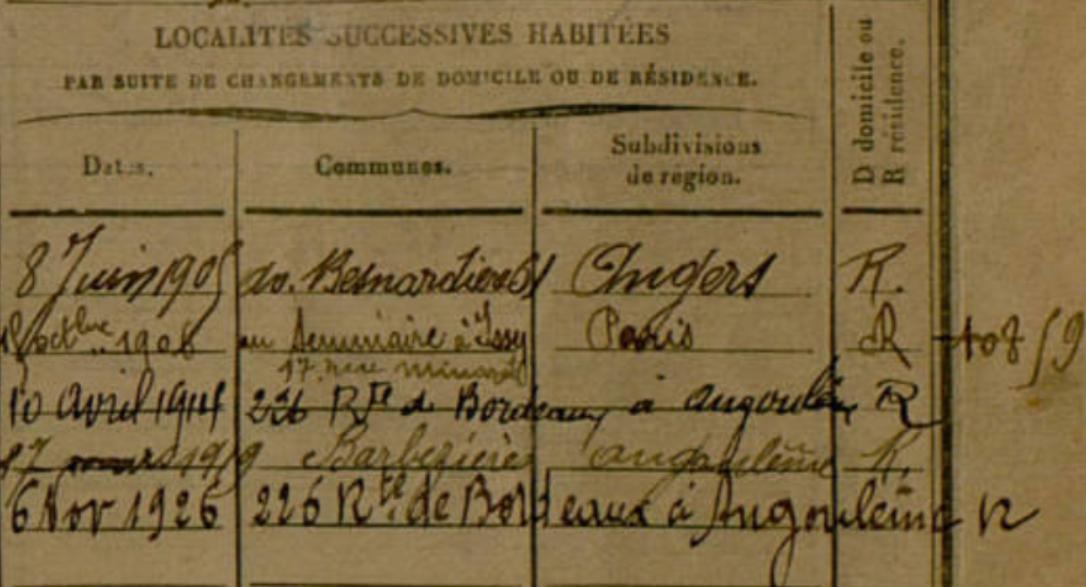 LOCALITÉS SUCCESSIVES HABITÉES
PAR SUITE DE CHANGEMENTS DE DOMICILE OU DE RÉSIDENCE.
Dates.
Communes.
Subdivisions
de région.
D domicile ou
R résidence.
8 Juin 1905 Angers R.
1906 au Seminaire à Issy Paris R
17 rue Minard
10 avril 1914 226 Rte de Bordeaux à Angoulême R
1919 Barbezières angoulême R.
6 Nov 1926 226 Rte de Bordeaux à Angoulême R